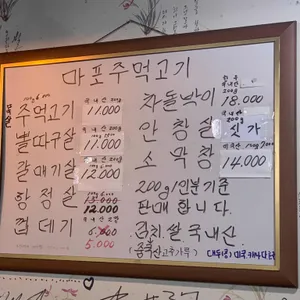 마포주먹고기
목살
주먹고기 100g 6.000 국내산 200g 11.000
뽈따구살 국내산 200g 11.000
갈매기살 국내산 200g 12.000
항정살 12.000
껍데기 5.000
차돌박이 국내산 200g 18.000
안창살 싯가
소막창 14.000
200g 1인분기준
판매합니다.
김치,쌀 국내산
(중국산고추가루)